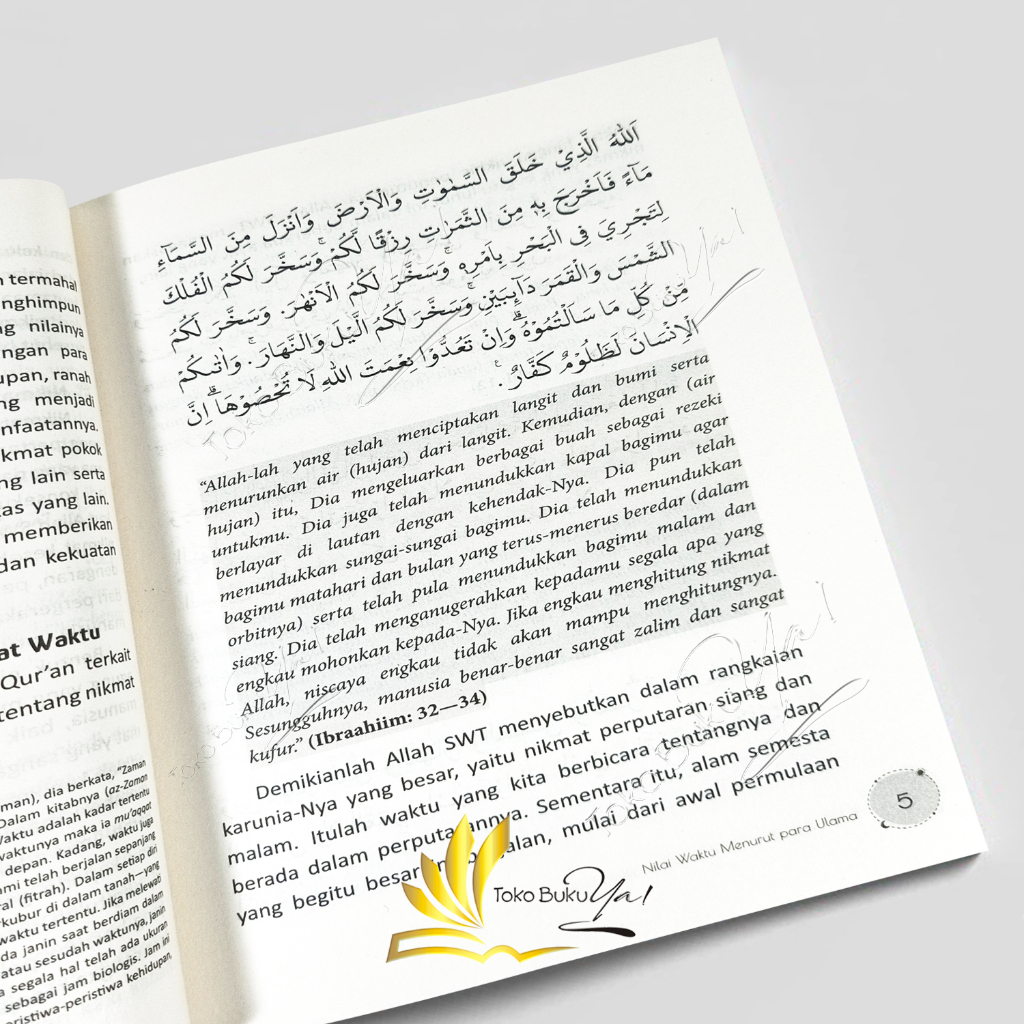 n termahal
nghimpun
ng nilainya
ungan para
upan, ranah
ng menjadi
nfaatannya.
kmat pokok
ng lain serta
as yang lain.
memberikan
dan kekuatan
at Waktu
Qur'an terkait
tentang nikmat
man), dia berkata, "Zaman
Dalam kitabnya (az-Zaman
Waktu adalah kadar tertentu
waktunya maka ia mu'aqqat
depan. Kadang, waktu juga
ami telah berjalan sepanjang
al (fitrah). Dalam setiap diri
rkubur di dalam tanah—yang
waktu tertentu. Jika melewati
da janin saat berdiam dalam
atau sesudah waktunya, janin
a segala hal telah ada ukuran
sebagai jam biologis. Jam ini
ristiwa-peristiwa kehidupan,
اَللّٰهُ الَّذِيْ خَلَقَ السَّمٰوٰتِ وَالْاَرْضَ وَاَنْزَلَ مِنَ السَّمَاۤءِ
مَاۤءً فَاَخْرَجَ بِهٖ مِنَ الثَّمَرٰتِ رِزْقًا لَّكُمْ ۚ وَسَخَّرَ لَكُمُ الْفُلْكَ
لِتَجْرِيَ فِى الْبَحْرِ بِاَمْرِهٖ ۚ وَسَخَّرَ لَكُمُ الْاَنْهٰرَ. وَسَخَّرَ لَكُمُ
الشَّمْسَ وَالْقَمَرَ دَاۤىِٕبَيْنِ ۚ وَسَخَّرَ لَكُمُ الَّيْلَ وَالنَّهَارَ ۚ. وَاٰتٰىكُمْ
مِّنْ كُلِّ مَا سَاَلْتُمُوْهُ ۗ وَاِنْ تَعُدُّوْا نِعْمَتَ اللّٰهِ لَا تُحْصُوْهَا ۗ اِنَّ
الْاِنْسَانَ لَظَلُوْمٌ كَفَّارٌ ۚ.
"Allah-lah yang telah menciptakan langit dan bumi serta
menurunkan air (hujan) dari langit. Kemudian, dengan (air
hujan) itu, Dia mengeluarkan berbagai buah sebagai rezeki
untukmu. Dia juga telah menundukkan kapal bagimu agar
berlayar di lautan dengan kehendak-Nya. Dia pun telah
menundukkan sungai-sungai bagimu. Dia telah menundukkan
bagimu matahari dan bulan yang terus-menerus beredar (dalam
orbitnya) serta telah pula menundukkan bagimu malam dan
siang. Dia telah menganugerahkan kepadamu segala apa yang
engkau mohonkan kepada-Nya. Jika engkau menghitung nikmat
Allah, niscaya engkau tidak akan mampu menghitungnya.
Sesungguhnya, manusia benar-benar sangat zalim dan sangat
kufur." (Ibraahiim: 32—34)
Demikianlah Allah SWT menyebutkan dalam rangkaian
karunia-Nya yang besar, yaitu nikmat perputaran siang dan
malam. Itulah waktu yang kita berbicara tentangnya dan
berada dalam perputarannya. Sementara itu, alam semesta
yang begitu besar, mulai dari awal permulaan
Nilai Waktu Menurut para Ulama
5
Toko Buku Ya!